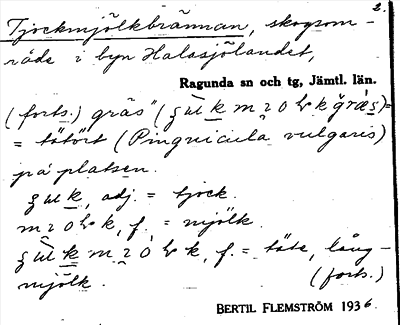 2.
Tjockmjölkbrännan, skogsom-
råde i byn Halasjölandet,
Ragunda sn och tg, Jämtl. län.
(forts.) gräs" (
= tätört (Pinguicula vulgaris)
på platsen.
adj. = tjock.
f. = mjölk.
f. = täte, lång-
mjölk. (forts.)
BERTIL FLEMSTRÖM 1936.